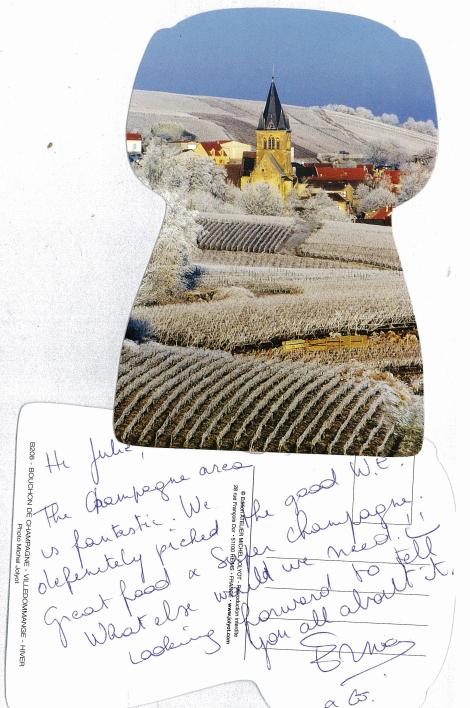 B206 - BOUCHON DE CHAMPAGNE - VILLEDOMMANGE - HIVER
Photo Michel Jolyot
Hi Julie,
The Champagne area
is fantastic. We
definitely picked the good W.E.
Great food & Super champagne.
What else would we need?
Looking forward to tell
you all about it.
& Co.
© Edition ATELIER MICHEL JOLYOT - Reproduction interdite
www.jolyot.com